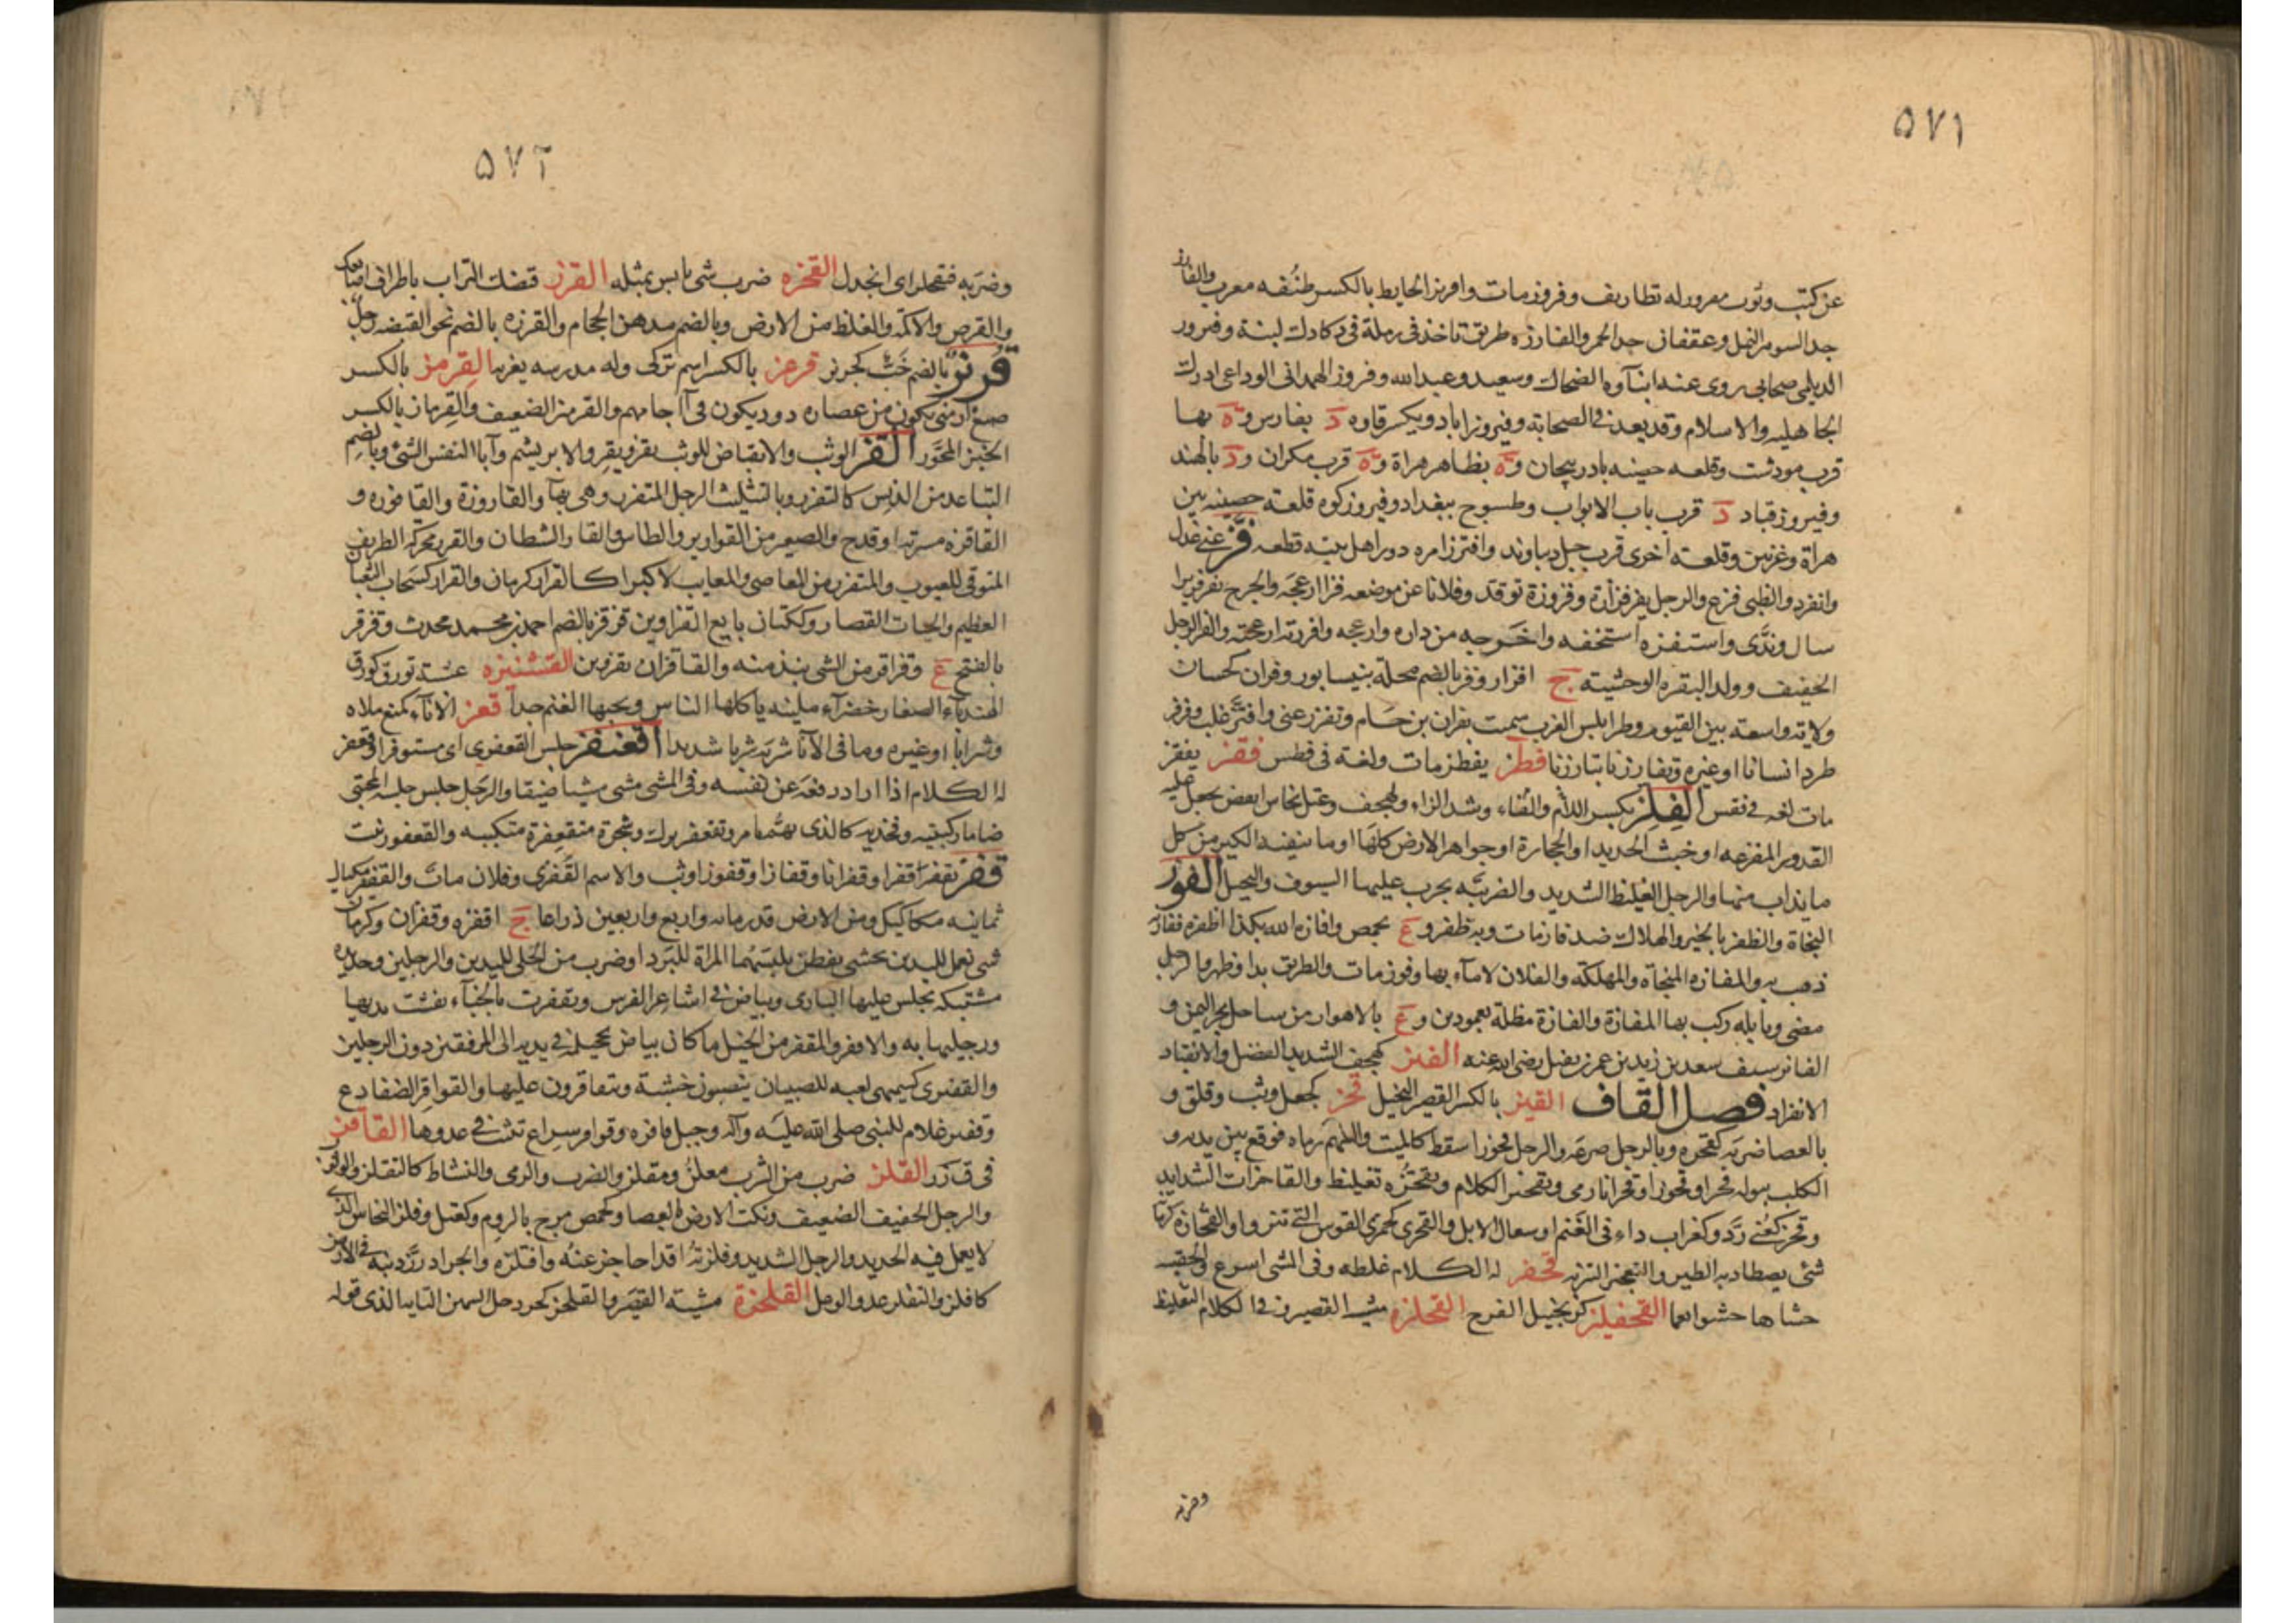 ۵۷۱
عن كتب وثوب مفروز له تطاريف وفروز مات وافريز الحايط بالكسر طنفه معرب والفارز
جد السود من النمل وعقفان جد الحمر والفارزه طريق تاخذ فى رملة فى دكادك لينة وفيروز
الديلمى صحابى روى عنه ابنآوه الضحاك وسعيد وعبد الله وفيروز الهمدانى الوداعى ادرك
الجاهليه والاسلام وقد يعد فى الصحابة وفيروزاباد ويكسر قاوه د بفارس وة بها
قرب مودشت وقلعه حصينه باذربيجان وة بظاهر هراة وة قرب مكران ود بالهند
وفيروزقباد د قرب باب الابواب وطسوج ببغداد وفيروزكوه قلعة حصينه بين
هراة وغزنين وقلعة اخرى قرب جبل دباوند وافترز امره دون اهل بيته قطعه فز عنى عدل
وانفرد والظبى فزع والرجل يفز فزازة وفزوزة توقد وفلانا عن موضعه فزا ازعجه والجرح يفز فزيزا
سال وندى واستفزه استخفه واخرجه من داره وازعجه وافززته ازعجته والفز الرجل
الخفيف وولد البقره الوحشيته ج افزاز وفز بالضم محلة بنيسابور وفزان كحسان
ولاية واسعة بين الفيوم وطرابلس الغرب سميت بفزان بن حام وتفزز عنى وافتز غلب وفزفز
طرد انسانا او غيره وتفاززنا تبارزنا فطز يفطز مات ولغة فى فطس فقز يفقز
مات لغه فى فقس الفلز بكسر اللام والفاء وشد الزاء وهجف وعتل نحاس ابيض يجعل عليه
القدور المفرغه او خبث الحديد او الحجارة او جواهر الارض كلها او ما ينفيه الكير من كل
ما يذاب منها والرجل الغليظ الشديد والضريبه يجرب عليها السيوف والبخيل الفوز
النجاة والظفر بالخير والهلاك ضد فاز مات وبه ظفر وع بحمص وافازه الله بكذا اظفره ففاز
ذهب به والمفازه المنجاه والمهلكه والفلاه لامآء بها وفوز مات والطريق بدا وظهر والرجل
مضى وبابله ركب بها المفازة والفازة مظلة بعمودين وع بالاهواز من ساحل بحر اليمن و
الفايز سيف سعد بن زيد بن عمر بن نفيل رضى الله عنه الفيز كهجف الشديد العضل والانقباد
الانفراد فصل القاف القبز بالكسر القصير البخيل قحز كجعل وثب وقلق و
بالعصا ضربه كقحزه وبالرجل صرعه والرجل قحوزا سقط كالميت والسهم رماه فوقع بين يديه و
الكلب ببوله قحزا وقحوزا وقحزانا رمى وتقحيز الكلام وتقحزه تغليظ والقاحزات الشدايد
وقحز كعنى رد وكغراب داء فى الغنم او سعال الابل والقحزى كجمزى القوس التى تنزو والقحازه كرمانه
شئ يصطاد به الطير والتقحز التنزيه قحفز له الكلام غلطه وفى المشى اسرع والحقيبه
حشاها حشوا نعما القحفليز كزنجبيل الفرج القحلزه مشيه القصير وفى الكلام التغليظ
وضربه
۵۷۲
وضربه فتقحلز اى انجدل القخزه ضرب شئ يابس بمثله القرز قبضك التراب باطراف اصابعك
والقرص والاكمة والغلظ من الارض وبالضم مدهن الحجام والقرزه بالضم نحو القبضه وجل
قربز بالضم خب كجربز قرعز بالكسر اسم تركى وله مدرسه بغزنه القرمز بالكسر
صبغ ارمنى يكون من عصاره دود يكون فى آجامهم والقرمز الضعيف والقرماز بالكسر
الخبز المحور القز الوثب والانقباض للوثب يقز ويقز والابريشم وآباء النفس الشئ وبالضم
التباعد من الدنس كالتقزز وبالتثليث الرجل المتقزز وهى بهآ والقازوزة والقاقوزه و
القاقزه مشربة او قدح والصغير من القوارير والطاس والقاز الشطان والقزز محركه الطريف
المتوقى للعيوب والمتقزز من المعاصى والمعايب لا كبرا كالقزاز كرمان والقزاز كسحاب الثعبان
العظيم والحيات القصار وككتان بايع القز اوين قزقز بالضم احمد بن محمد محدث وقزقز
بالفتح ع وقزاقز من الشئ نبذ منه والقاقزان بقزوين القشنيزه عشبة تورق كورق
الهندباء الصغار خضراء ملبنه ياكلها الناس ويحبها الغنم جدا قعز الانآء كمنع ملاه
وشرابا او غيره وما فى الانآ شربه شربا شديدا اقعنفز جلس القعفزى اى مستوفزا وقعفز
له الكلام اذا اراد دفعه عن نفسه وفى المشى مشى مشيا ضيقا والرجل جلس جلسه المحتبى
ضاما ركبتيه وفخذيه كالذى يهم بامر وتقعفز برك وشجرة متقعفزة متكببه والقعفوز نبت
قفز يقفز قفزا وقفزانا وقفازا وقفوزا وثب والاسم القفزى وفلان مات والقفيز مكيال
ثمانيه مكاكيك ومن الارض قدر مائه واربع واربعين ذراعا ج اقفزه وقفزان وكرمان
شئ يعمل لليدين يحشى بقطن يلبسهما المراة للبرد او ضرب من الحلى لليدين والرجلين وحديده
مشتبكه يجلس عليها البازى وبياض فى اشاعر الفرس وتقفزت بالحناء نقشت يديها
ورجليها به والاقفز والمقفز من الخيل ما كان بياض تحجيله فى يديه الى المرفقين دون الرجلين
والقفيزى كسميهى لعبه للصبيان ينصبون خشبة ويتقافزون عليها والقوافز الضفادع
وقفيز غلام للنبى صلى الله عليه وآله وجبل قافزه وقوافز سراع تثب فى عدوها القاقز
فى ق زز القلز ضرب من الشرب يقلز ويقلز والضرب والرمى والنشاط كالتقلز والوثب
والرجل الخفيف الضعيف ونكت الارض بالعصا وكحمص مرج بالروم وكعتل وفلز النحاس الذى
لا يعمل فيه الحديد والرجل الشديد وقلزته اقداحا جرعته واقتلزه والجراد رز ذنبه فى الارض
كاقلز والتقلز عدو الوعل القلحزة مشية القصير والقلحز كجردحل السمين التايه الذى قوله